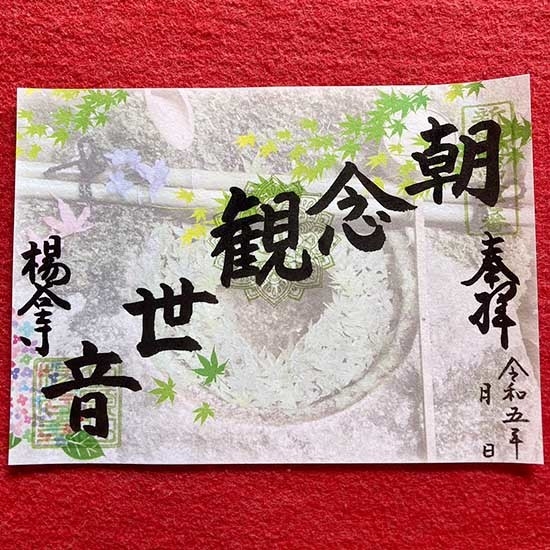 奉拝
令和五年
月 日
朝念観世音
楊谷寺